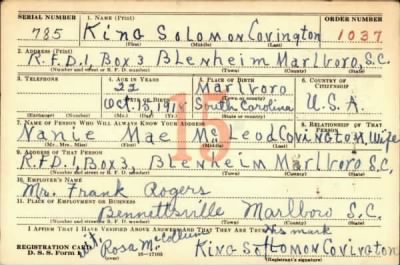 SERIAL NUMBER 1. NAME (Print) ORDER NUMBER
785 King Solomon Covington 1037
(First) (Middle) (Last)
2. ADDRESS (Print)
R.F.D.1, Box 3 Blenheim Marlboro, S.C.
(Number and street or R. F. D. number) (Town) (County) (State)
3. TELEPHONE 4. AGE IN YEARS 5. PLACE OF BIRTH 6. COUNTRY OF CITIZENSHIP
22 Marlboro
DATE OF BIRTH (Town or county)
Oct. 13, 1918 South Carolina U.S.A.
(Exchange) (Number) (Mo.) (Day) (Yr.) (State or country)
7. NAME OF PERSON WHO WILL ALWAYS KNOW YOUR ADDRESS 8. RELATIONSHIP OF THAT PERSON
Nanie Mae McLeod Covington, Wife
(Mr., Mrs., Miss) (First) (Middle) (Last)
9. ADDRESS OF THAT PERSON
R.F.D.1, Box 3, Blenheim Marlboro S.C.
(Number and street or R. F. D. number) (Town) (County) (State)
10. EMPLOYER'S NAME
Mr. Frank Rogers
11. PLACE OF EMPLOYMENT OR BUSINESS
Bennettsville Marlboro S.C.
(Number and street or R. F. D. number) (Town) (County) (State)
I AFFIRM THAT I HAVE VERIFIED ABOVE ANSWERS AND THAT THEY ARE TRUE. his mark
REGISTRATION CARD
D. S. S. Form 1 Wit. Rosa McCollum 16—17105 King Solomon Covington
(Registrant's signature)
15